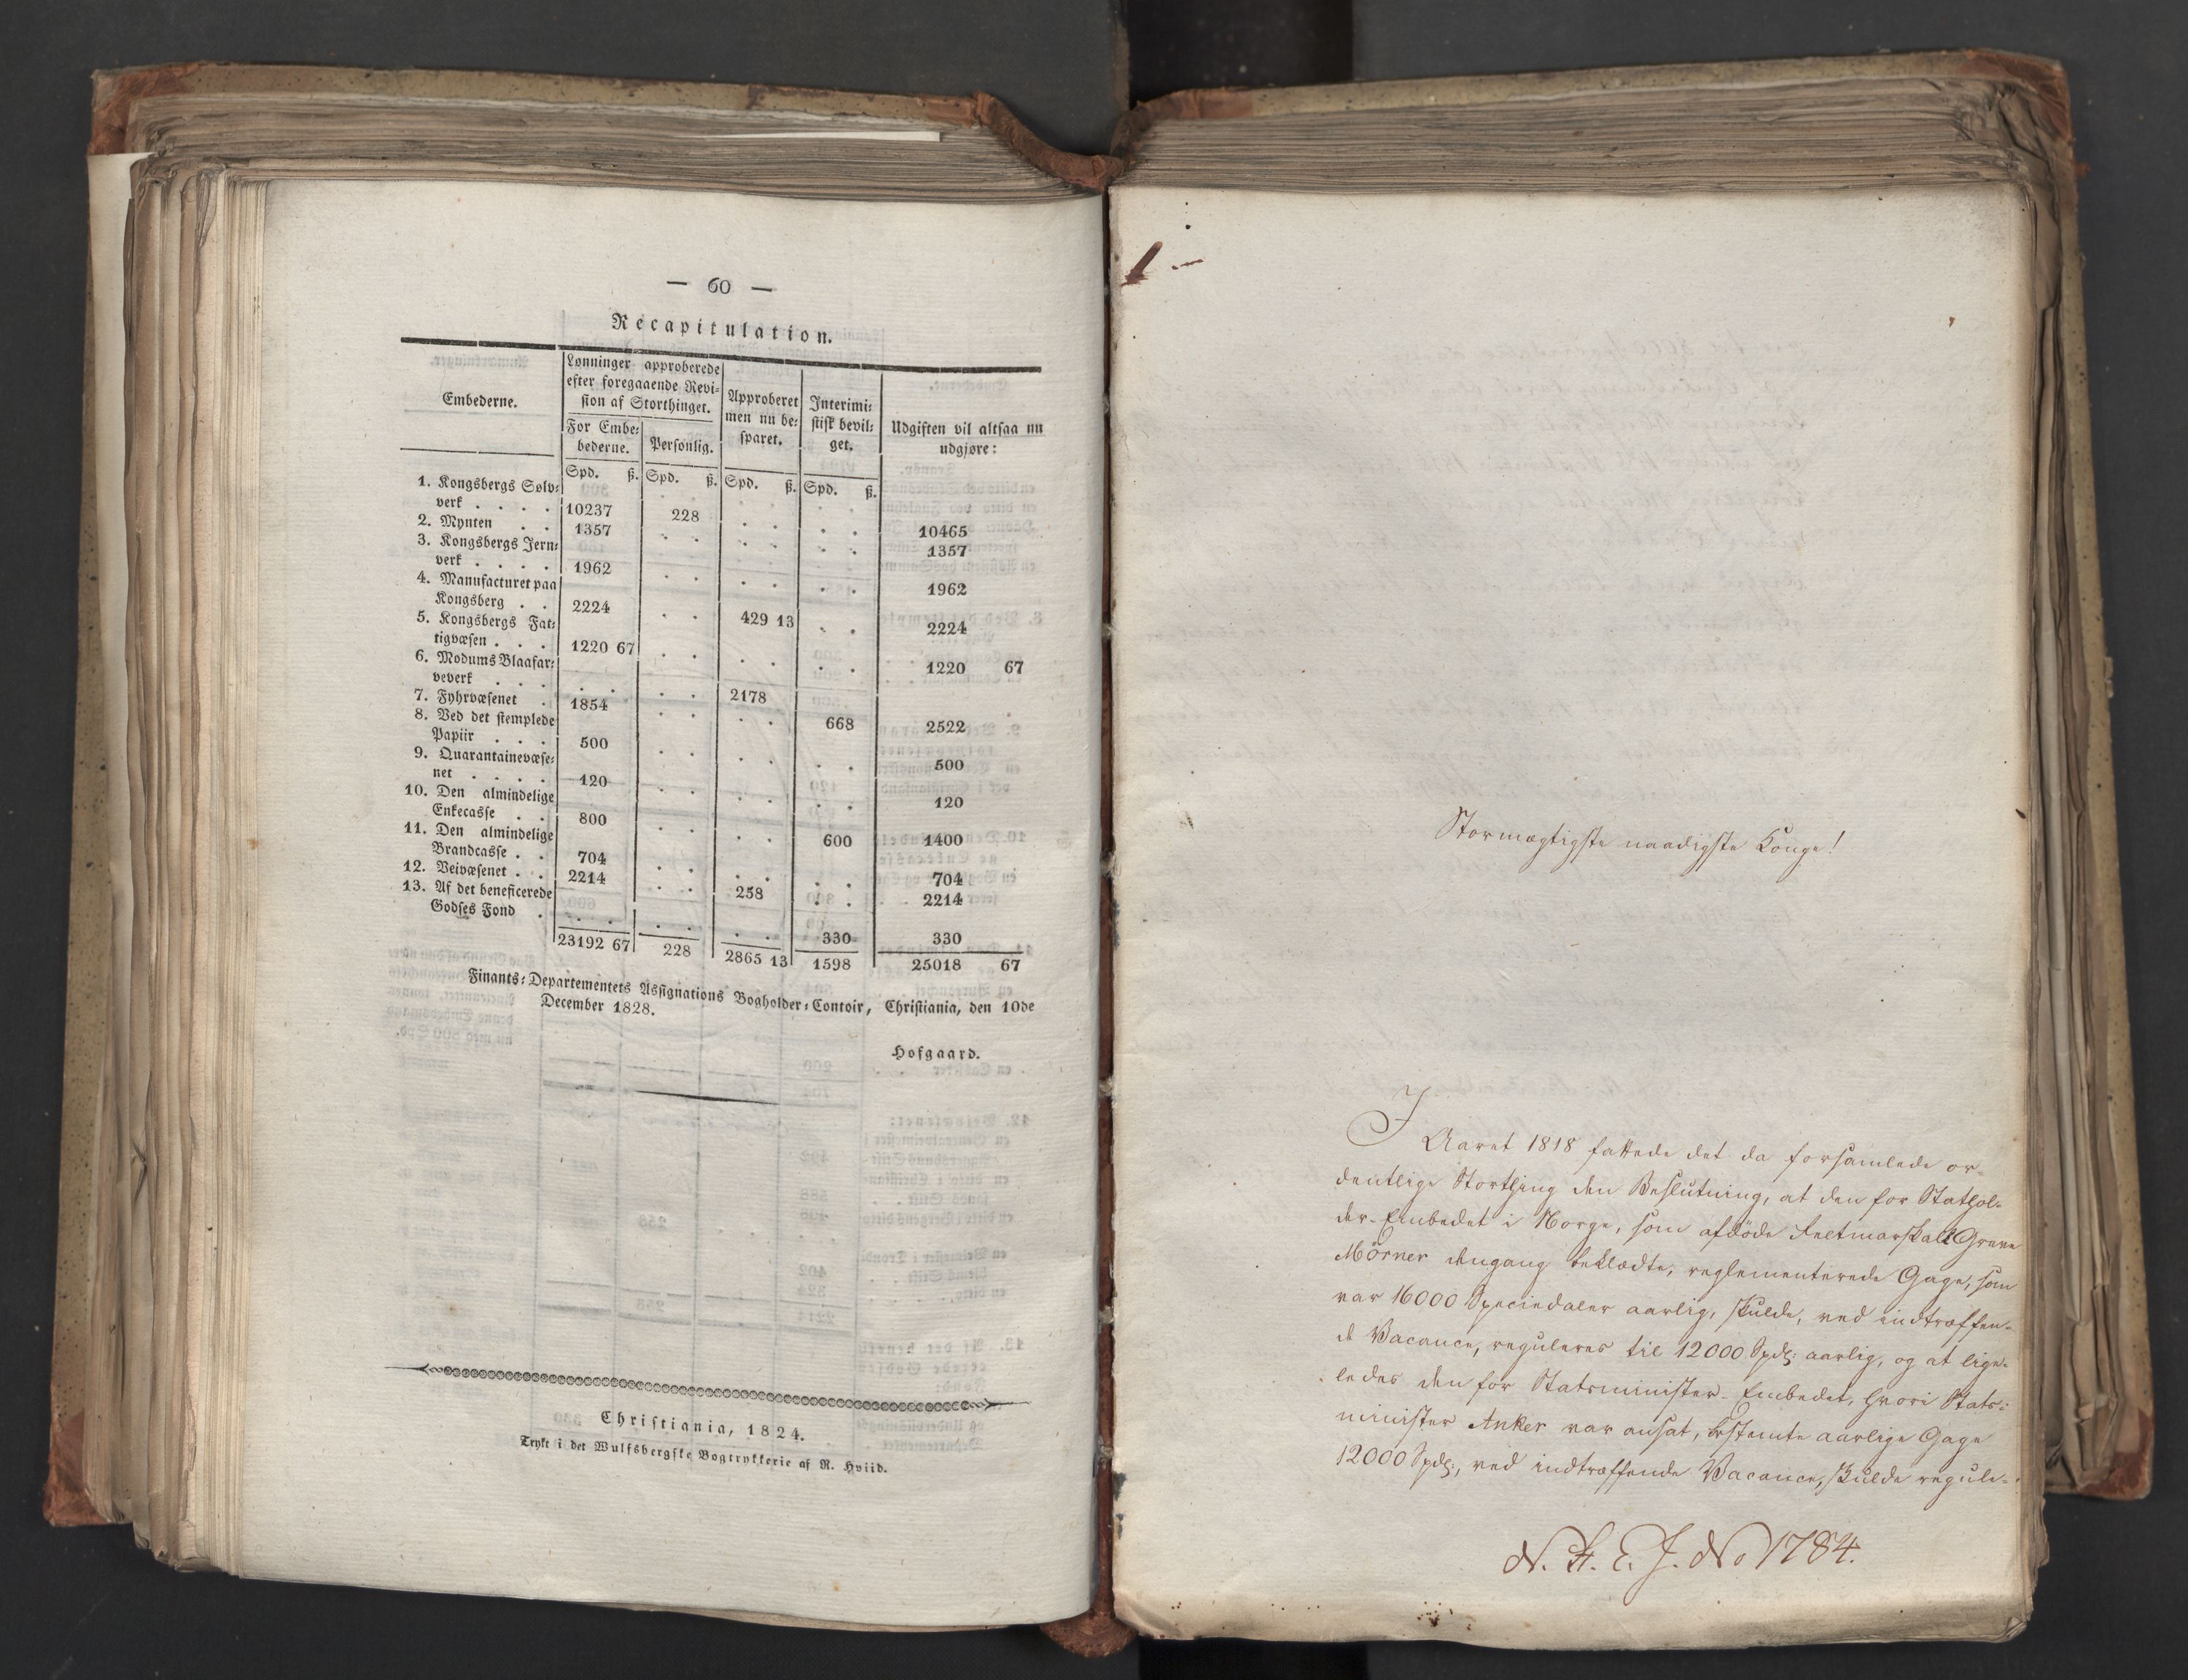 — 60 —
Recapitulation.
Embederne.
Lønninger approberede
efter foregaaende Revi-
sion af Storthinget.
For Embe-
bederne.
Personlig.
Approberet
men nu be-
sparet.
Interimi-
stisk bevil-
get.
Udgiften vil altsaa nu
udgjøre:
Spd. ß. Spd. ß. Spd. ß. Spd. ß.
1. Kongsbergs Sølv-
verk . . . . 10237 228 . . . . 10465
2. Mynten . . 1357 . . . . . . 1357
3. Kongsbergs Jern-
verk . . . . 1962 . . . . . . 1962
4. Manufacturet paa
Kongsberg . . 2224 . . 429 13 . . 2224
5. Kongsbergs Fat-
tigvæsen . . . 1220 67 . . . . . . 1220 67
6. Modums Blaafar-
veverk . . . . . . . 2178
7. Fyhrvæsenet . 1854 . . . . 668 2522
8. Ved det stemplede
Papiir . . . 500 . . . . . . 500
9. Quarantainevæse-
net . . . . 120 . . . . . . 120
10. Den almindelige
Enkecasse . . 800 . . . . 600 1400
11. Den almindelige
Brandcasse . . 704 . . . . . . 704
12. Veivæsenet . . 2214 . . 258 . . 2214
13. Af det beneficerede
Godses Fond . . . . . . . 330 330
23192 67 228 2865 13 1598 25018 67
Finants-Departementets Assignations Bogholder-Contoir, Christiania, den 10de
December 1828.
Hofgaard.
Christiania, 1824.
Trykt i det Wulfsbergske Bogtrykkerie af R. Hviid.
Stormægtigste naadigste Konge!
I Aaret 1818 fattede det da forsamlede or-
dentlige Storthing den Beslutning, at den for Stathol-
der-Embedet i Norge, som afdøde Feltmarskall Greve
Mörner dengang beklædte, reglementerede Gage, som
var 16000 Speciedaler aarlig, skulde, ved indtræffen-
de Vacance, reguleres til 12000 Spdlr: aarlig, og at lige-
ledes den for Statsminister-Embedet, hvori Stats-
minister Anker var ansat, bestemte aarlige Gage
12000 Spdlr:, ved indtræffende Vacance, skulde regule-
N. A. E. J. No 1784.